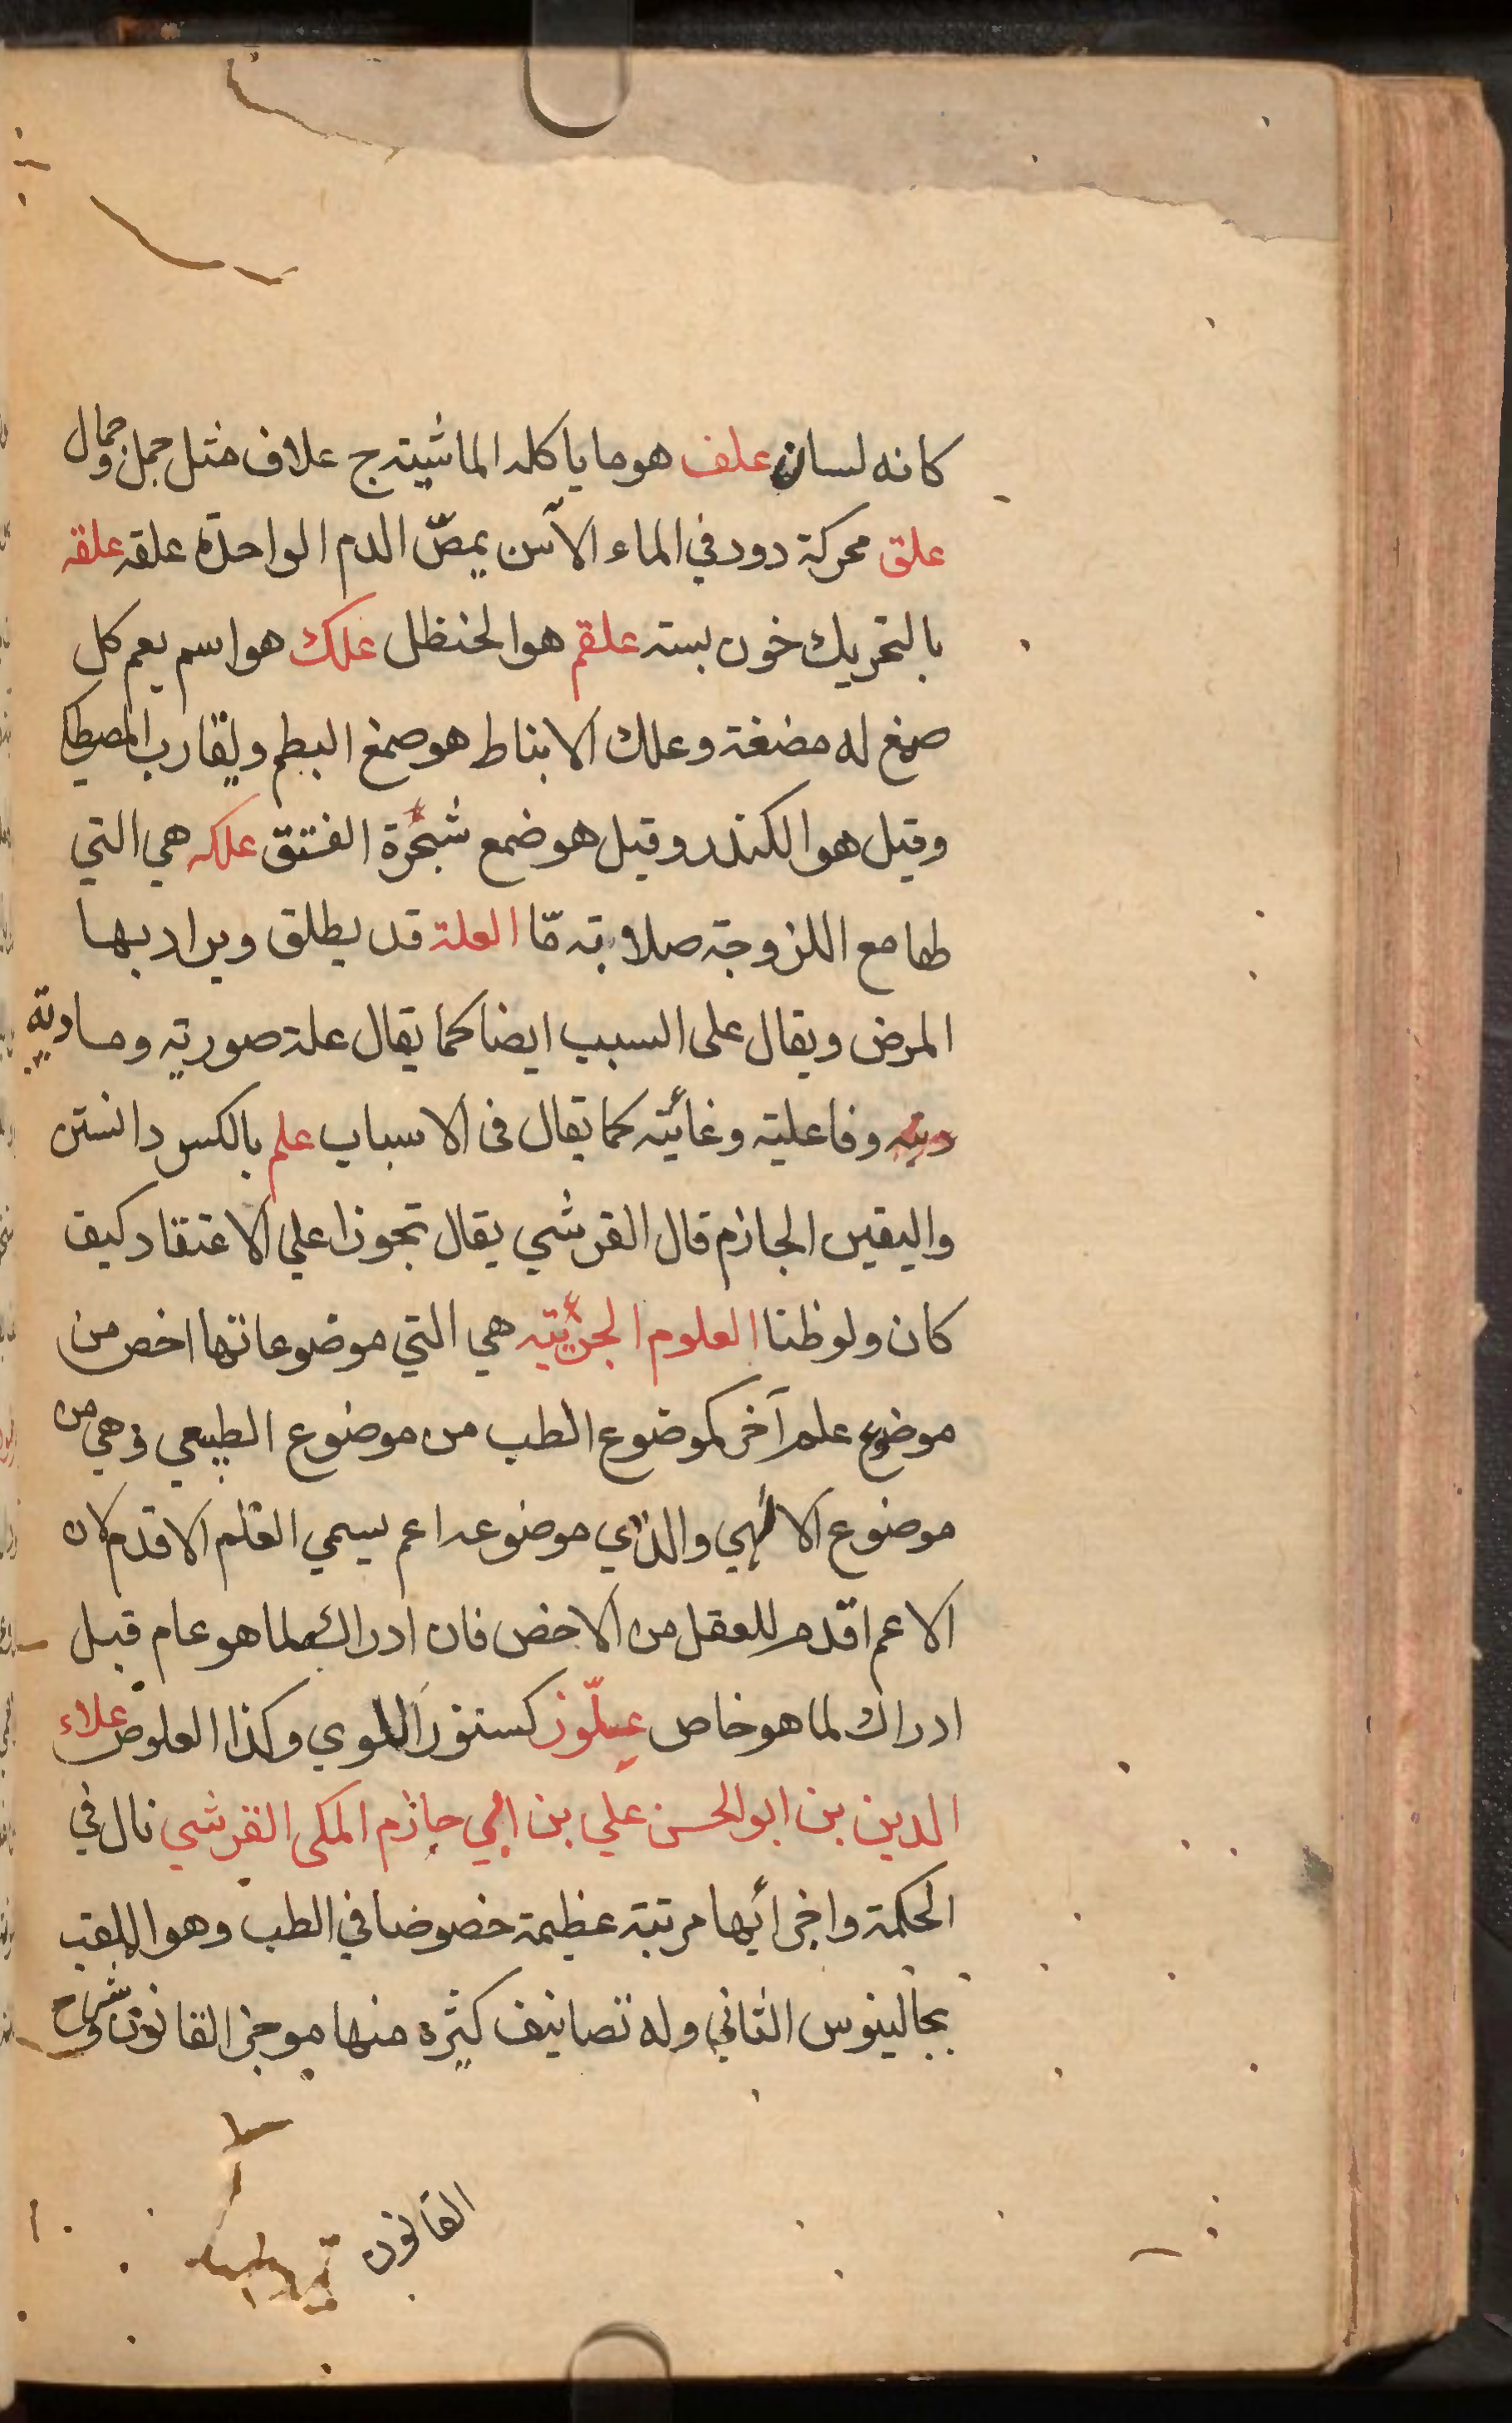 كانه لسان علف هو ما ياكله الماشيته ج علاف مثل جمل وجمال
علق محركة دود في الماء الآسن يمصّ الدم الواحدة علقه علقه
بالتحريك خون بسته علقم هو الحنظل علك هو اسم يعم كل
صمغ له مضغة وعلك الانباط هو صمغ البطم ويقارب المصطكي
وقيل هو الكندر وقيل هو ضمع شجرة الفستق علكه هي التي
طها مع اللزوجة صلابته مّا العلة قد يطلق ويراد بها
المرض ويقال على السبب ايضا كما يقال علة صوريه ومادية
ديه وفاعلية وغائيه كما يقال فى الاسباب علم بالكسر دانستن
واليقين الجازم قال القرشي يقال تجوزا علي الاعتقاد كيف
كان ولو ظنا العلوم الجزئيه هي التي موضوعاتها اخص من
موضوع علم آخر كموضوع الطب من موضوع الطبيعي وهي من
موضوع الالهي والذي موضوعه اعم يسمي العلم الاقدم لان
الاعم اقدم للعقل من الاخص فان ادراك لما هو عام قبل
ادراك لما هو خاص علّوز كسنور اللوي وكذا العلوص علاء
الدين بن ابو الحسن علي بن ابي حازم المكى القرشي نال في
الحكمة واجزائها مرتبة عظيمة خصوصا في الطب وهو الملقب
بجالينوس الثاني وله تصانيف كثيره منها موجز القانون وشرح
القانون